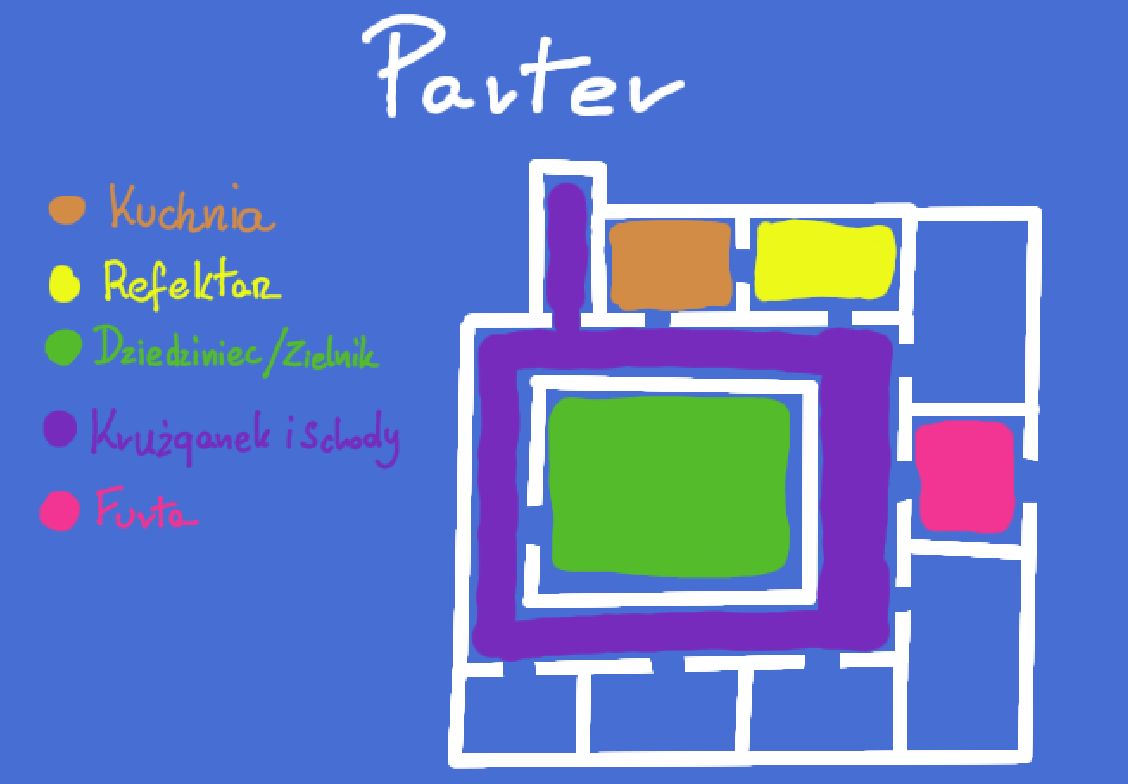 Parter
Kuchnia
Refektarz
Dziedziniec/Zielnik
Krużganek i Schody
Furta